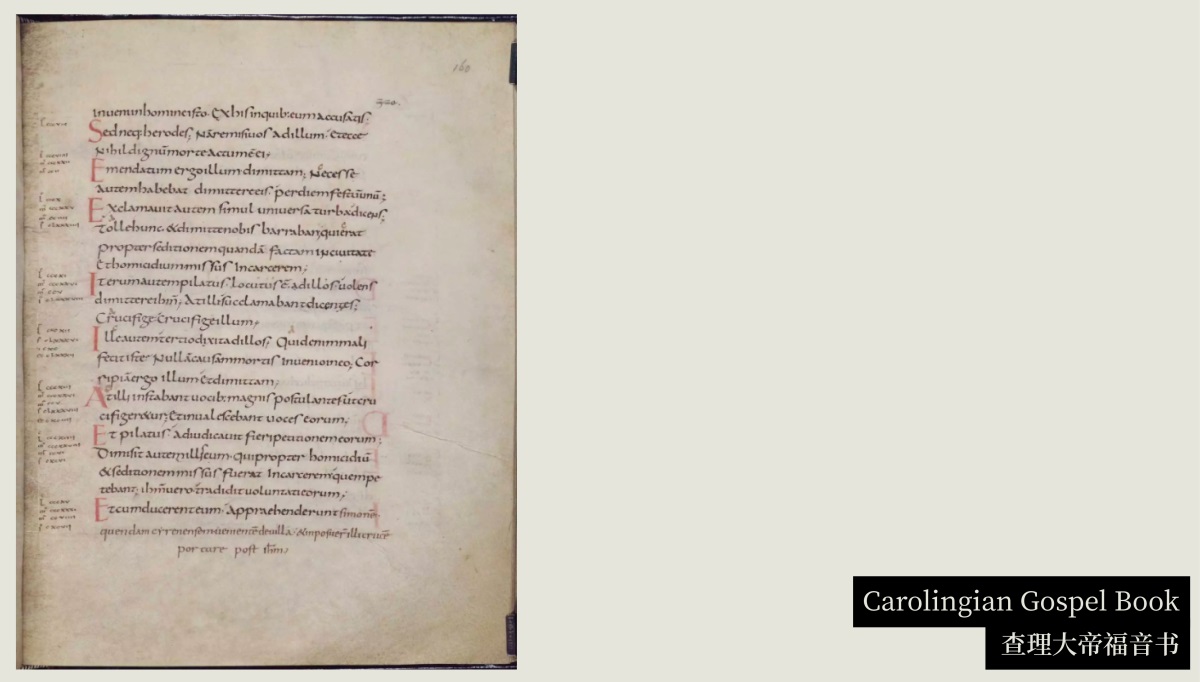 160
320.
inueniinhomineisto. Exhisinquib;eumaccusatis;
Sedneq;herodes; Nāremisiuos adillum. Etecce
Nihil dignūmorteactumē ei,
Emendatum ergoillum dimittam; Necesse
autemhabebat dimittereeis. perdiemfestū unū;
Exclamauit autem simul uniuersaturbadicens;
Tollehunc. &dimittenobis barraban, quierat
propterseditionemquandā factamincivitate
Ethomicidiummissus Incarcerem;
Iterumautempilatus. locutus ē adillos. uolens
dimittereihm̄, Atillisucclamabantdicentes;
Crucifige. Crucifigeillum,
Illeautemtertiodixitadillos; Quidenimmali
fecitiste. Nullācausammortis Inuenioineo; Cor
ripiāergo illum Etdimittam,
Atilli instabant uocib; magnis postulantes ut cru
cifiger&ur; Etinualescebant uoces eorum;
Et pilatus. adiudicauit fieripetitionemeorum;
Dimisit autemillis eum. quipropter homicidiū
&seditionemmissus fuerat Incarcerem. quempe
tebant; ihm̄uero. tradidituoluntatieorum;
Etcumducerenteum. Appraehenderuntsimonē
quendam cyrenensemuenientēdeuilla. &imposuer̄illicrucē
portare post ihm̄,
Carolingian Gospel Book
查理大帝福音书